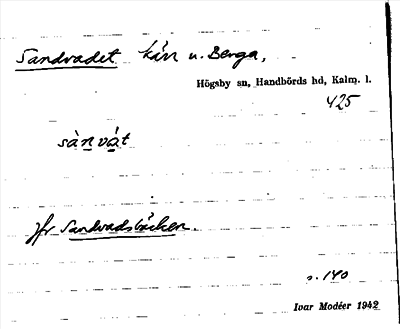 Sandvadet kärr u. Berga,
Högsby sn, Handbörds hd, Kalm. l.
425
sànvát
jfr Sandvadsbäcken.
s. 140
Ivar Modéer 1942